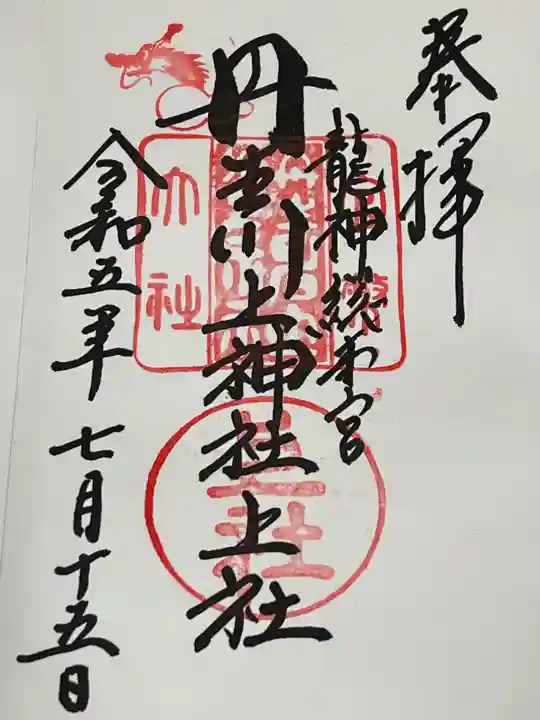 奉拝
龍神総本宮
丹生川上神社上社
令和五年七月十五日
大社
上社